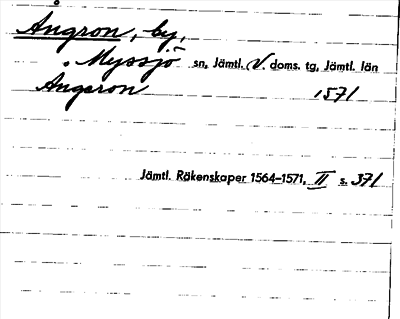 Ångron, by,
Myssjö sn, Jämtl. V. doms. tg, Jämtl. län
Angeron 1571
Jämtl. Räkenskaper 1564–1571, II s. 371